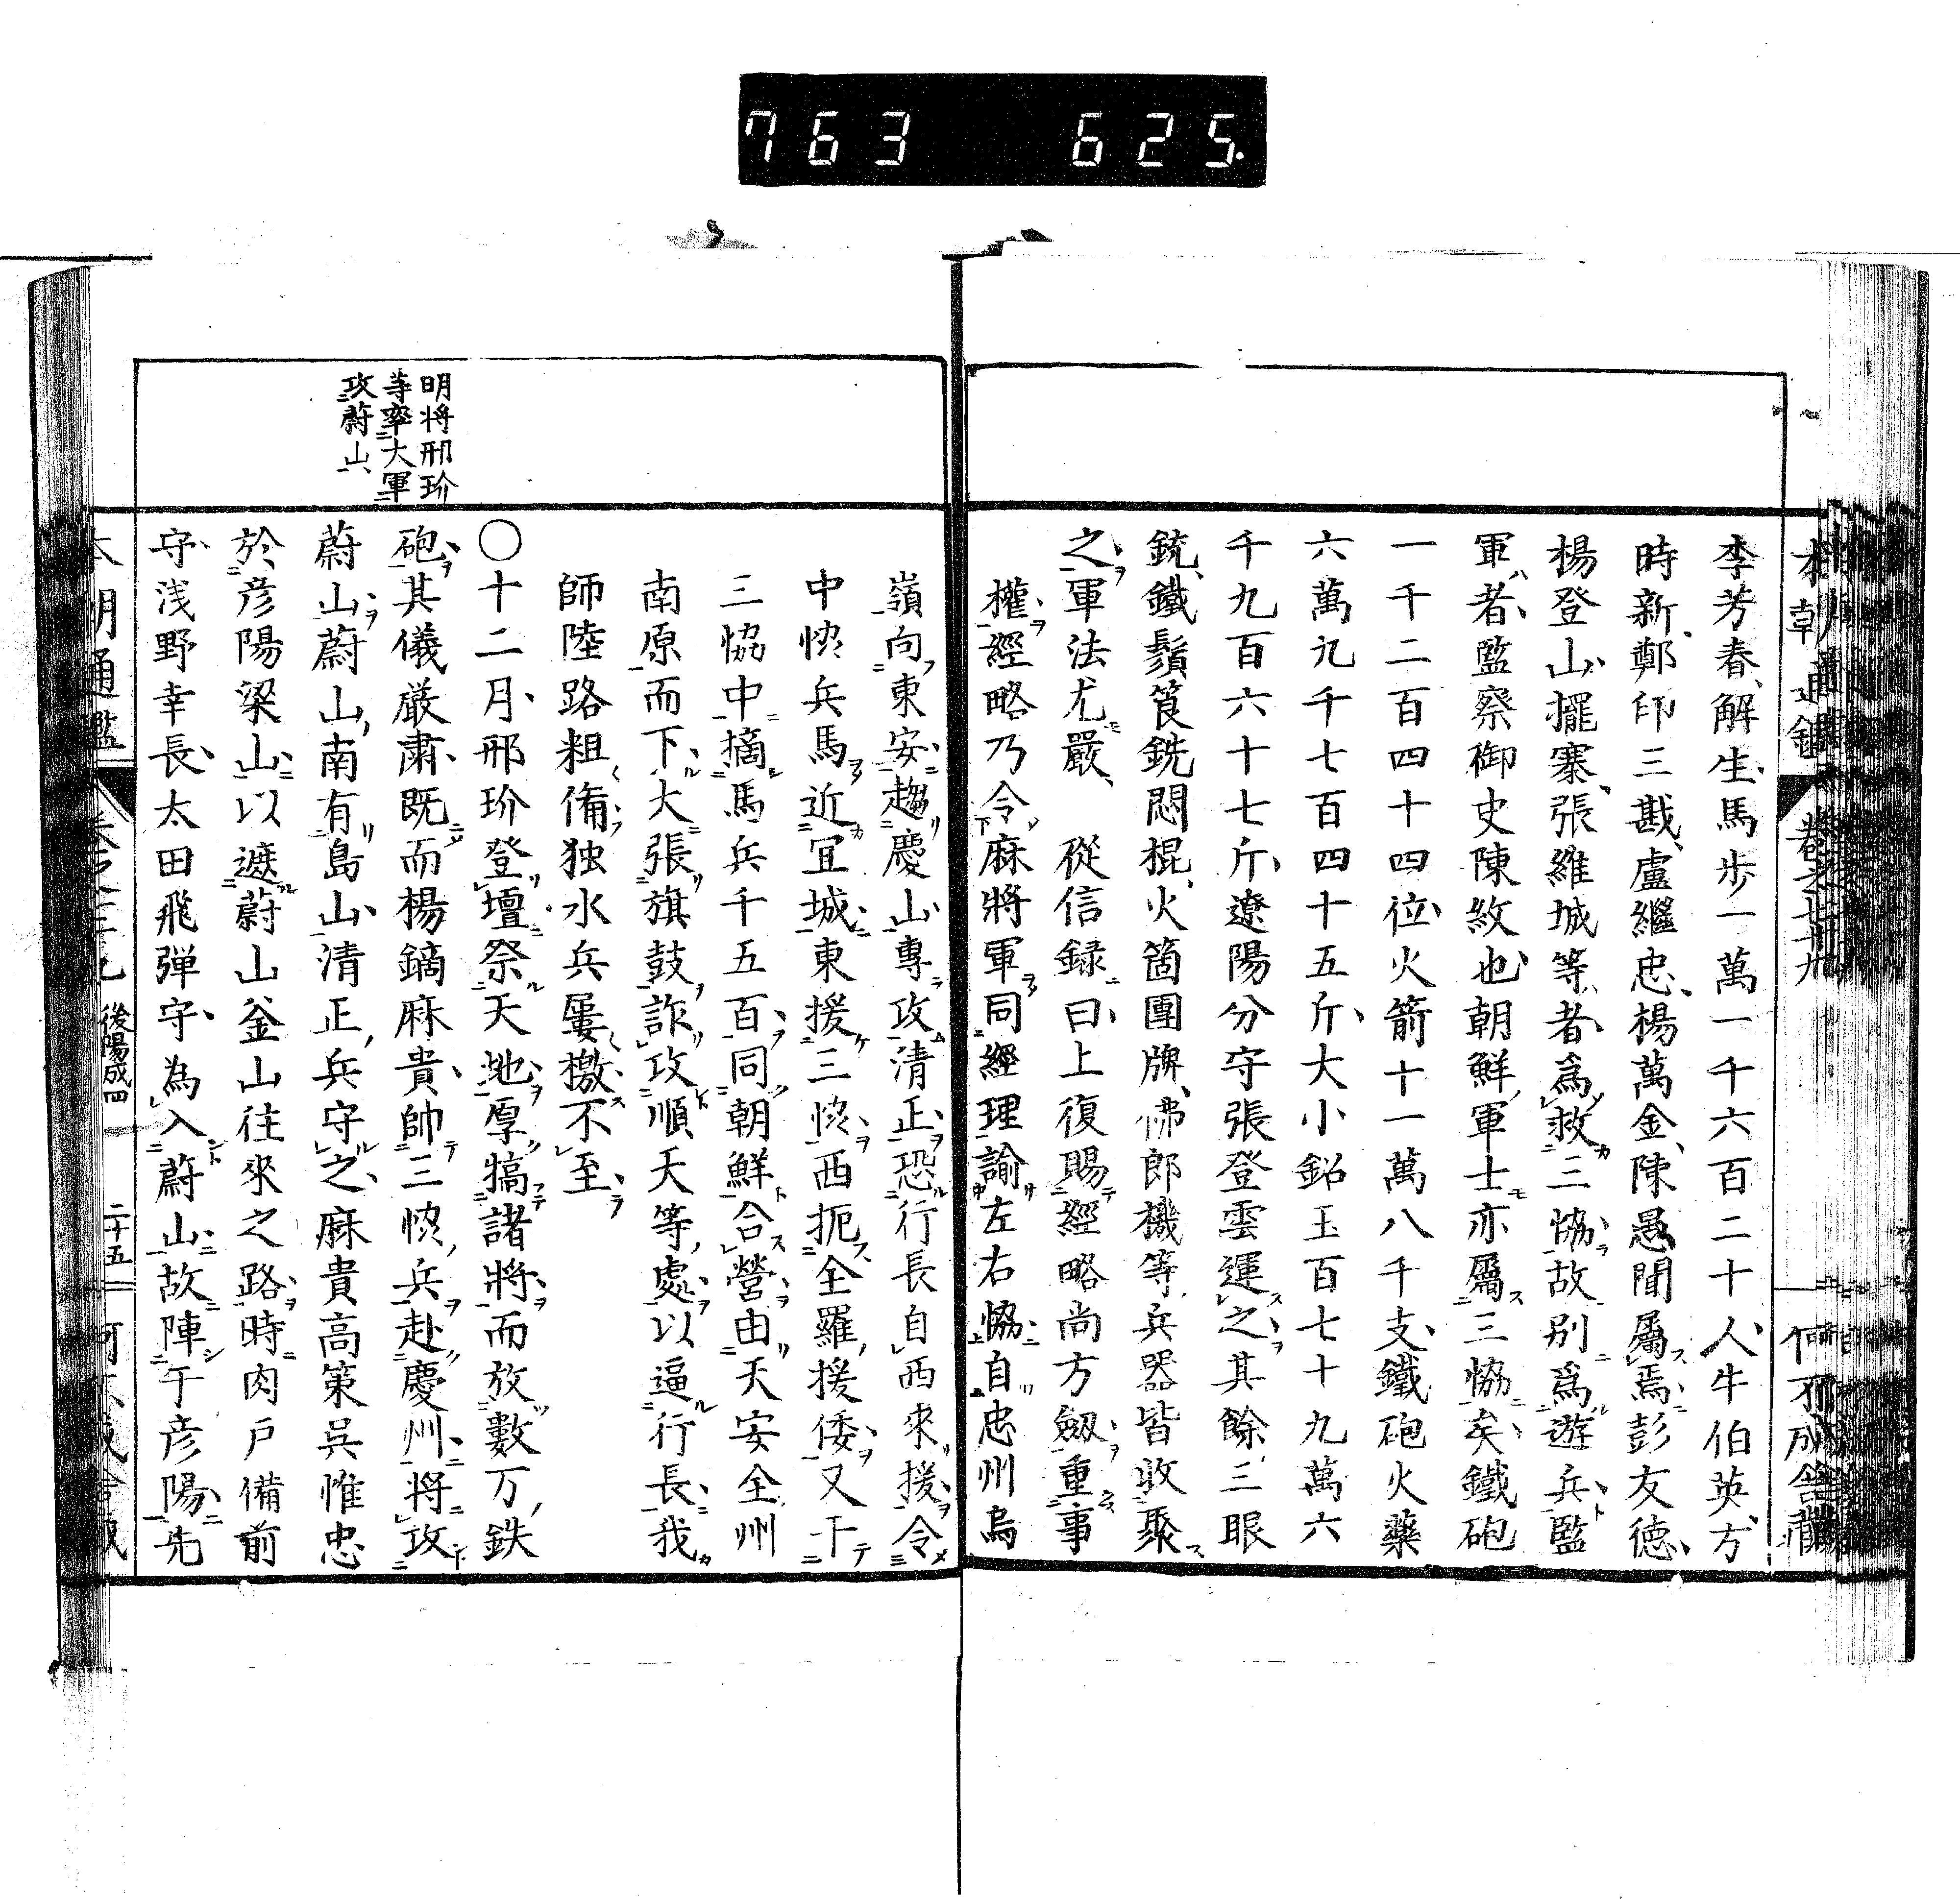 763 625.
本朝通鑑 卷之七十九 何不成舎藏
李芳春解生馬步一萬一千六百二十人牛伯英方
時新鄭印三戡盧繼忠楊萬金陳愚聞屬焉彭友德
楊登山擺寨張維城等者爲救三恊故別爲遊兵監
軍者監察御史陳紋也朝鮮軍士亦屬三恊矣鐵砲
一千二百四十四位火箭十一萬八千支鐵砲火藥
六萬九千七百四十五斤大小鉛玉百七十九萬六
千九百六十七斤遼陽分守張登雲運之其餘三眼
銃鐵鬚筤銑悶棍火箇團牌佛郎機等兵器皆收聚
之軍法尤嚴從信録曰上復賜經略尚方劔重事
權經略乃令麻將軍同經理諭左右恊自忠州烏
嶺向東安趨慶山專攻清正恐行長自西來援令
中恊兵馬近冝城東援三恊西扼全羅援倭又干
三恊中摘馬兵千五百同朝鮮合營由天安全州
南原而下大張旗鼓詐攻順天等處以逼行長我
師陸路粗備独水兵屢檄不至
明将邢玠
等率大軍
攻蔚山
〇十二月邢玠登壇祭天地厚犒諸將而放數万鉄
砲其儀厳肅既而楊鏑麻貴帥三恊兵赴慶州将攻
蔚山蔚山南有島山清正兵守之麻貴高策呉惟忠
於彦陽梁山以遮蔚山釜山往來之路時肉戸備前
守浅野幸長太田飛弾守為入蔚山故陣于彦陽先
本朝通鑑 後陽成四 二十五